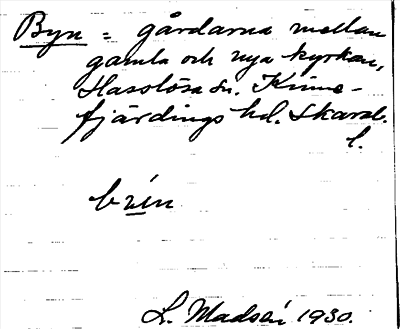 Byn = gårdarna mellan
gamla och nya kyrkan,
Hasslösa sn. Kinne-
fjärdings hd. Skarab.
l.
brín
L. Madsén 1930.